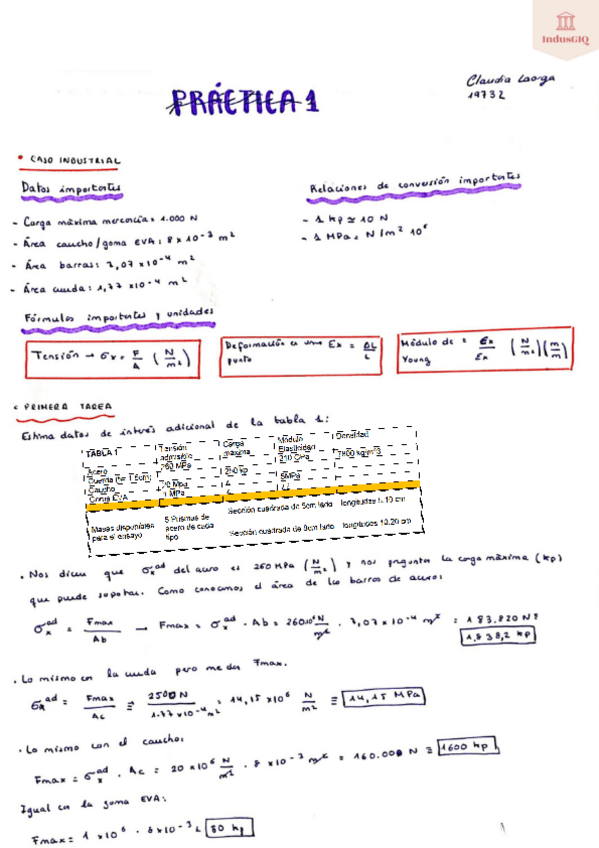 IndusGIQ
Claudia Laorga
19732
PRÁCTICA 1
• CASO INDUSTRIAL
Datos importantes
Relaciones de conversión importantes
- Carga máxima mercancía: 1.000 N
- 1 kp ≃ 10 N
- Área caucho/goma EVA: 8 x 10⁻³ m²
- 1 MPa = N/m² 10⁶
- Área barras: 7,07 x10⁻⁴ m²
- Área cuerda: 1,77 x10⁻⁴ m²
Fórmulas importantes y unidades
Tensión → σx = F/A (N/m²)
Deformación en un punto → Ex = ΔL/L
Módulo de Young = σx/Ex (N/m²)(m/m)
• PRIMERA TAREA
Estima datos de interés adicional de la tabla 1:
TABLA 1 Tensión admisible Carga máxima Módulo Elasticidad Densidad
Acero 260 MPa 210 GPa 7800 kg/m3
Cuerda 250 kp
Caucho 20 Mpa 5MPa
Goma EVA 1 MPa
Masas disponibles para el ensayo 5 Prismas de acero de cada tipo
Sección cuadrada de 5cm lado longitudes 5, 10 cm
Sección cuadrada de 8cm lado longitudes 10,20 cm
• Nos dicen que σx^ad del acero es 260 MPa (N/m²) y nos preguntan la carga máxima (kp)
que puede soportar. Como conocemos el área de las barras de acero:
σx^ad = Fmax/Ab → Fmax = σx^ad · Ab = 260·10⁶ N/m² · 7,07 x10⁻⁴ m² = 183.820 N ≡
18382 kp
• Lo mismo en la cuerda pero me dan Fmax.
σx^ad = Fmax/Ac ≡ 2500 N/1.77 x10⁻⁴ m² = 14,15 x10⁶ N/m² ≡ 14,15 MPa
• Lo mismo con el caucho:
Fmax = σx^ad · Ac = 20 x10⁶ N/m² · 8 x10⁻³ m² = 160.000 N ≡ 1600 kp
Igual en la goma EVA:
Fmax = 1 x10⁶ · 8 x10⁻³ = 80 kp